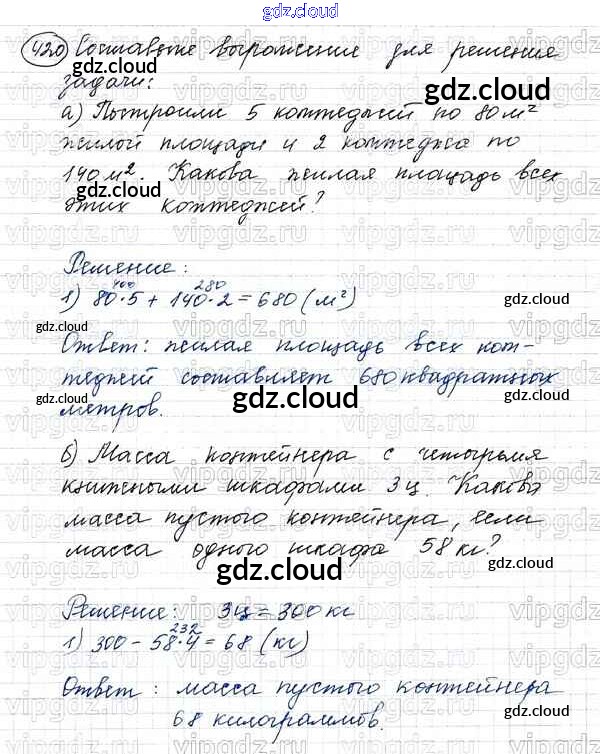 gdz.cloud
420 Составьте выражение для решения
задачи:
а) Построили 5 коттеджей по 80 м²
жилой площади и 2 коттеджа по
140 м². Какова жилая площадь всех
этих коттеджей?
Решение:
400 280
1) 80·5 + 140·2 = 680 (м²)
Ответ: жилая площадь всех кот-
теджей составляет 680 квадратных
метров.
б) Масса контейнера с четырьмя
книжными шкафами 3 ц. Какова
масса пустого контейнера, если
масса одного шкафа 58 кг?
Решение: 3ц = 300 кг
232
1) 300 - 58·4 = 68 (кг)
Ответ: масса пустого контейнера
68 килограммов.